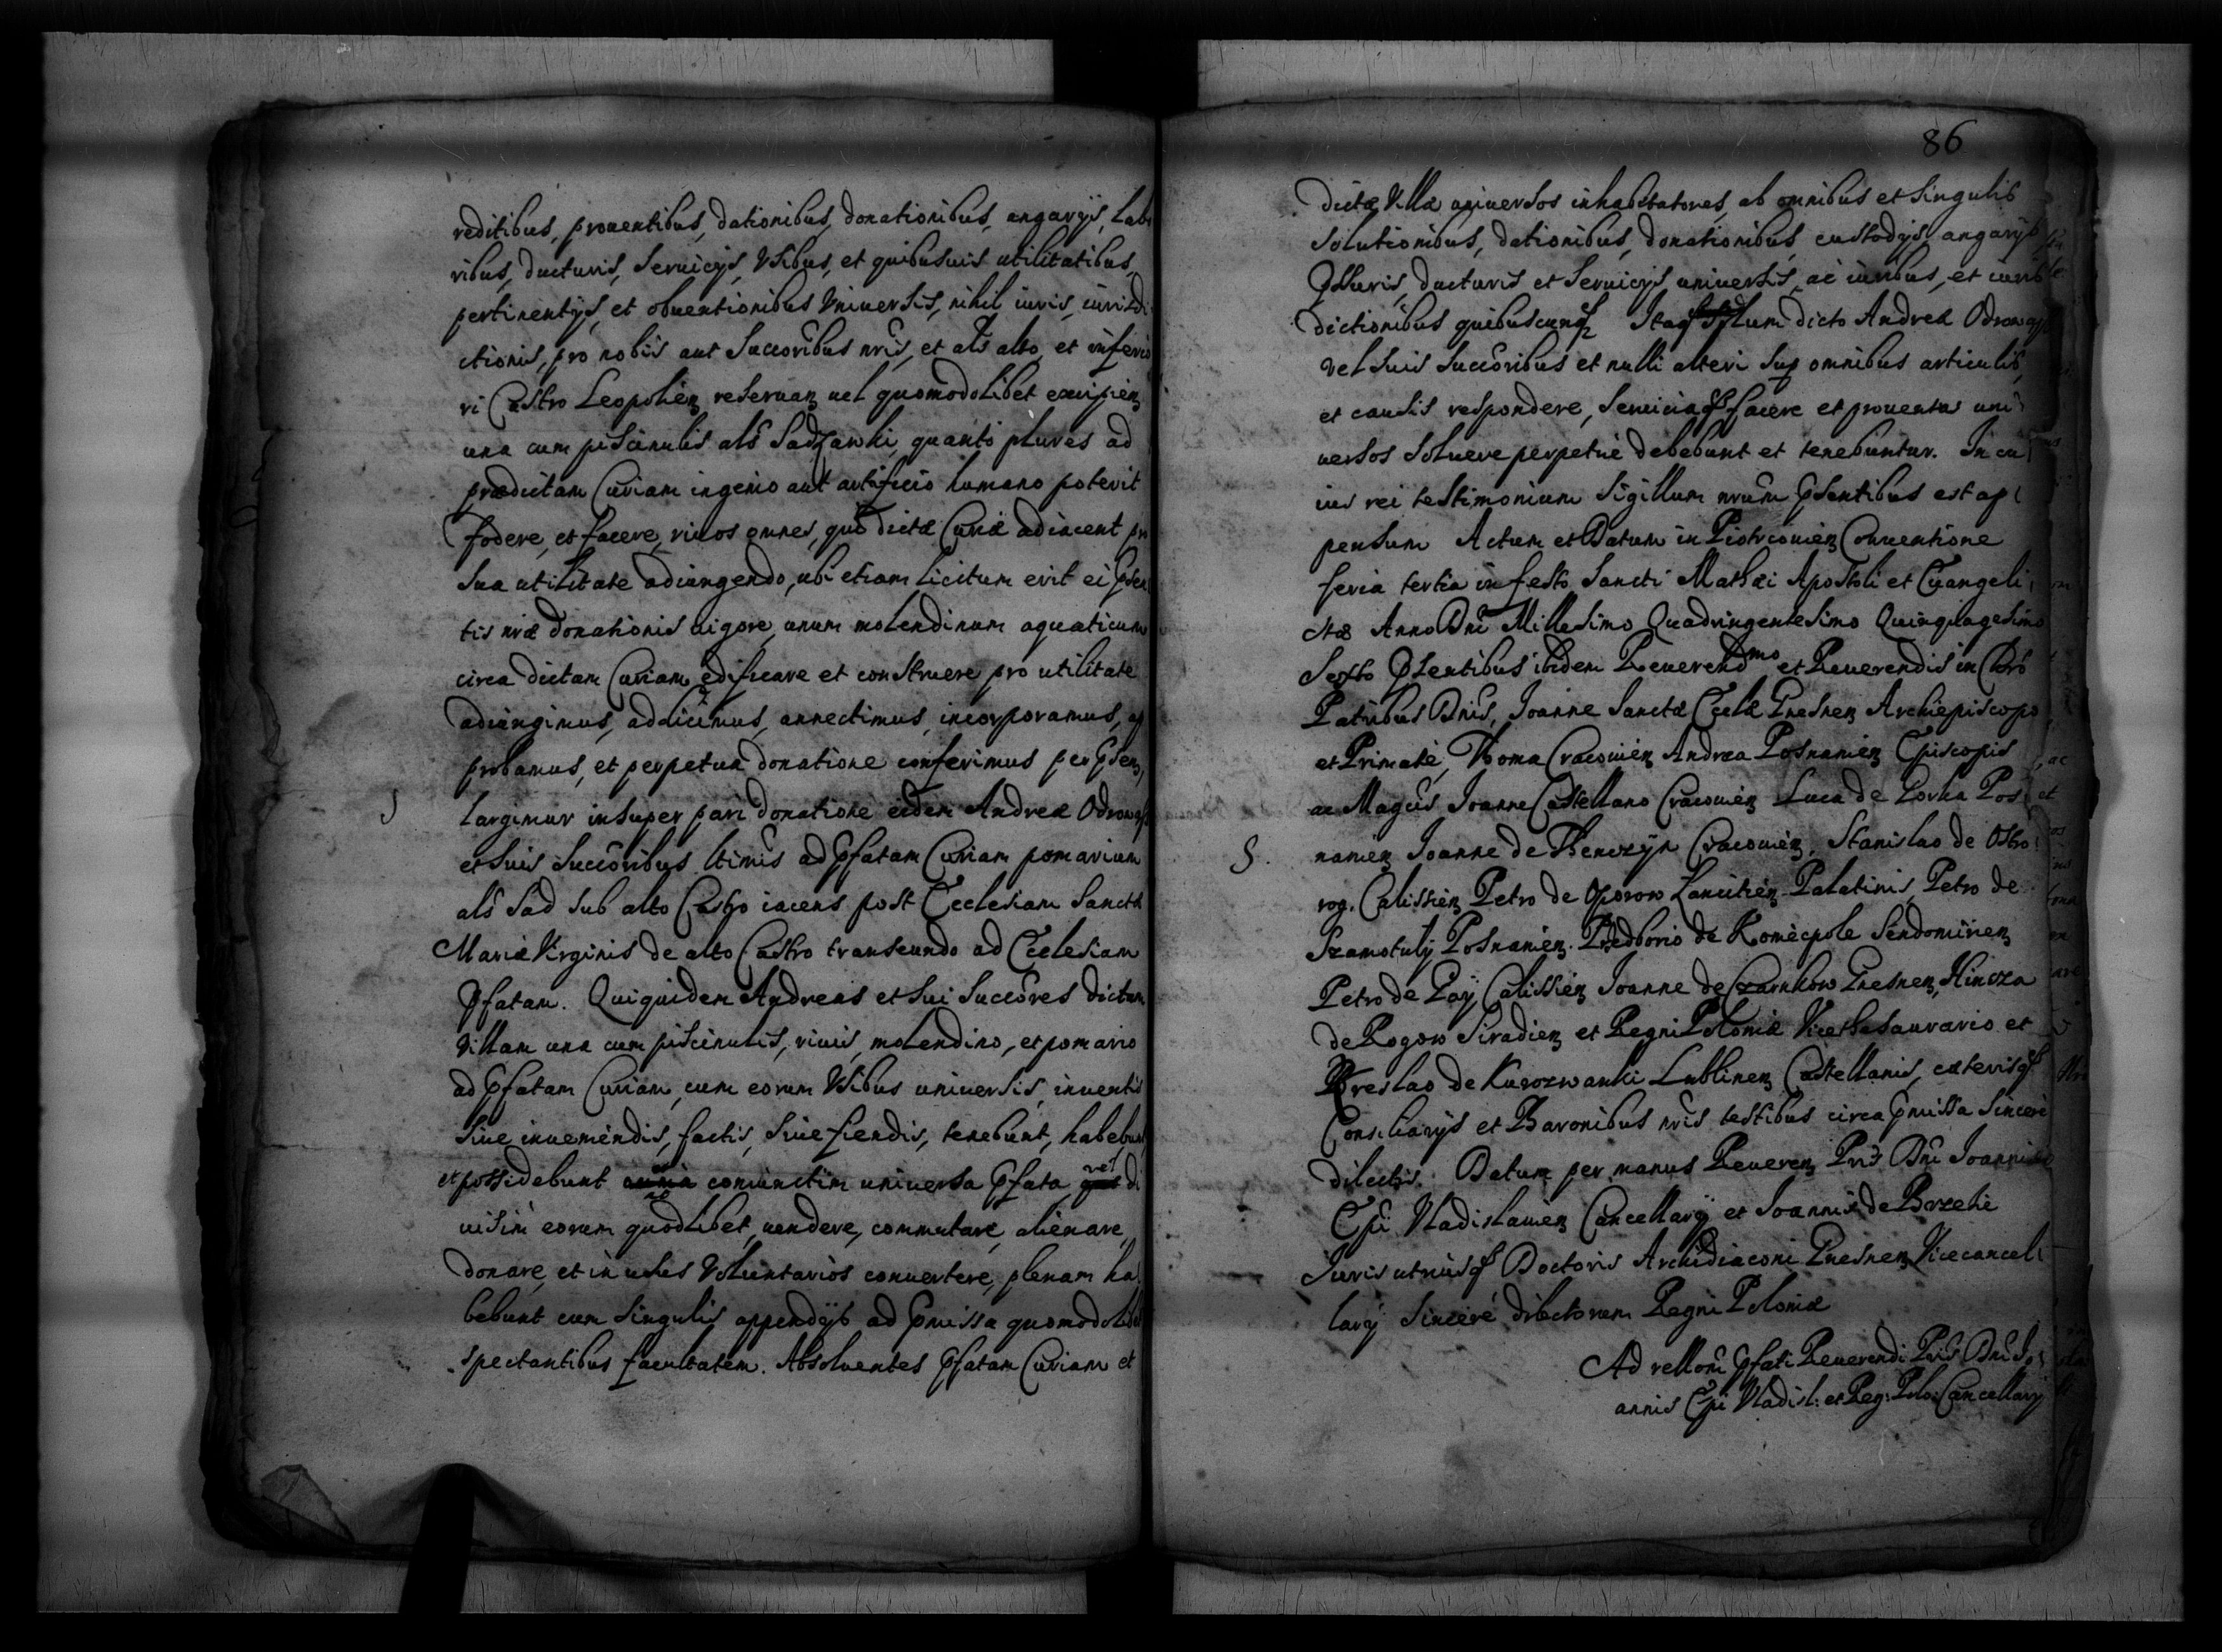 reditibus, prouentibus, dationibus, donationibus, angarijs, labo
ribus, ducturis, seruicijs, Vsibus, et quibusuis utilitatibus,
pertinentijs, et obuentionibus Vniuersis, nihil iuris, iurisdi
ctionis, pro nobis aut Succoribus nris, et als alto, et inferio
ri Castro Leopolien reseruan uel quomodolibet excipien
una cum piscinulis als Sadzawki, quanto plures ad
prædictam Curiam ingenio aut artificio humano poterit
fodere, et facere, riuos omnes, qui dictæ Curiæ adiacent pro
sua utilitate adiungendo, ubi etiam licitum erit ei pñsen
tis nræ donationis uigore, unum molendinum aquaticum
circa dictam Curiam ędificare et construere pro utilitate
adiungimus, addicimus, annectimus, incorporamus, ap
probamus, et perpetua donatione conferimus per pñsen,
Largimur insuper pari donatione eidem Andreæ Odrowąs
et suis Succoribus ltimis ad pfatam Curiam pomarium
als Sad sub alto Castro iacens post Ecclesiam Sanctæ
Mariæ Virginis de alto Castro transeundo ad Ecclesiam
pfatam. Quiquidem Andreas et sui Succores dictam
Villam una cum piscinulis, riuis, molendino, et pomario
ad pfatam Curiam, cum eorum Vsibus uniuersis, inuentis
siue inueniendis, factis, siue fiendis, tenebunt, habebunt
et possidebunt coniunctim uniuersa pfata vel di
uisim eorum quodlibet uendere, commutare, alienare,
donare, et in usus Voluntarios conuertere, plenam ha
bebunt cum singulis appendijs ad pmissa quomodolibet
spectantibus facultatem. Absoluentes pfatam Curiam et
86
dictæ Villæ uniuersos inhabitatores, ab omnibus et singulis
solutionibus, dationibus, donationibus, custodijs, angarijs
ducturis et seruicijs uniuersis, ac iuribus, et iuris
dictionibus quibuscunq Itaq dicto Andreæ Odrowąs
vel suis Succoribus et nulli alteri sup omnibus articulis,
et causis respondere, seruiciaq facere et prouentus uni
uersos soluere perpetue debebunt et tenebuntur. In cu
ius rei testimonium Sigillum nrum pñsentibus est ap
pensum Actum et Datum in Piotrcouien Conuentione
feria tertia in festo Sancti Mathæi Apostoli et Euangeli
stæ Anno Dni Millesimo Quadringentesimo Quinquagesimo
Sexto Pñsentibus ibidem Reuerendmo et Reuerendis in Chro
Patribus Dnis, Joanne Sanctæ Ecclæ Gnesnen Archiepiscopo
et Primate, Thoma Cracouien Andrea Posnanien Episcopis
ac Magcis Joanne Castellano Cracouien Luca de Gorka Pos
nanien Joanne de Thenczyn Cracouien, Stanislao de Ostro
rog. Calissien Petro de Oporow Lancicien Palatinis, Petro de
Szamotuly Posnanien. Predborio de Koniecpole Sendomirien
Petro de Calissien Joanne de Czarnkow Gnesnen, Hincza
de Rogow Siradien et Regni Poloniæ Vicethesaurario et
Kreslao de Kurozwanki Lublinen Castellanis, cæterisq
Consiliarijs et Baronibus nris testibus circa pmissa sincere
dilectis. Datum per manus Reueren Pris Dni Joannis
Epi Vladislauien Cancellarij et Joannis de Brzezie
Iuris utriusq Doctoris Archidiaconi Gnesnen Vicecancel
larij sincere dilectorum Regni Poloniæ
Ad relloñ pfati Reuerendi Pris Dni Jo
annis Epi Vladisl: et Reg: Polo: Cancellarij